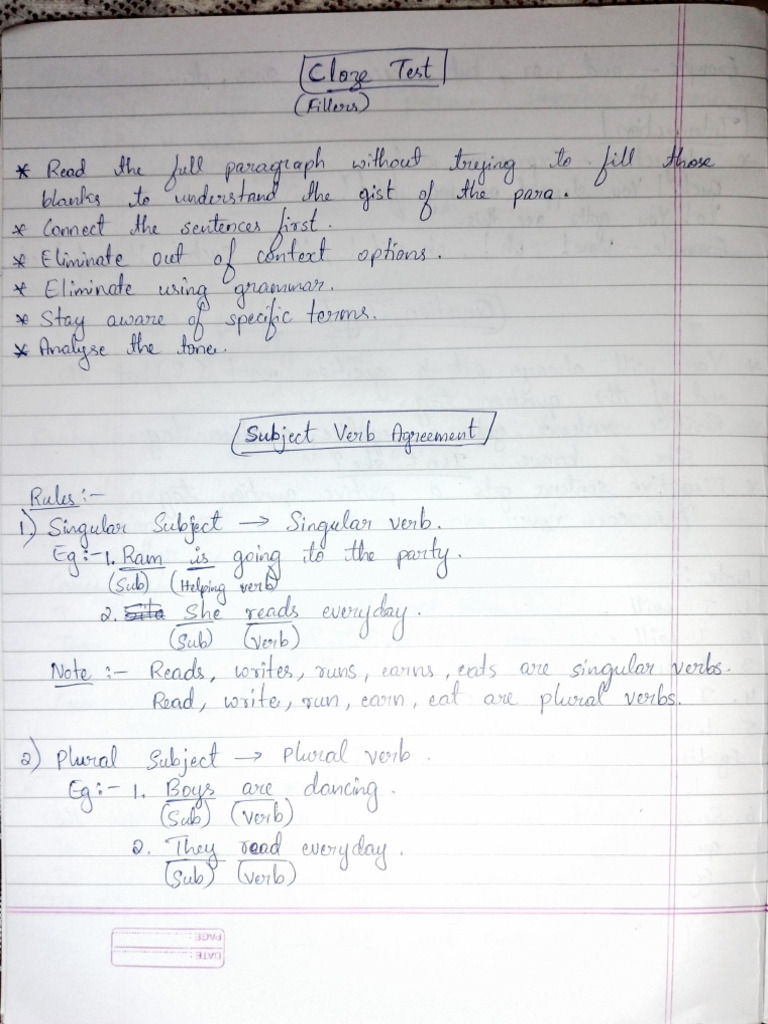 Cloze Test
(Fillers)
* Read the full paragraph without trying to fill those
blanks to understand the gist of the para.
* Connect the sentences first.
* Eliminate out of context options.
* Eliminate using grammar.
* Stay aware of specific terms.
* Analyse the tone.
Subject Verb Agreement
Rules :-
1) Singular Subject → Singular verb.
Eg :- 1. Ram is going to the party.
(Sub) (Helping verb)
2. Sita She reads everyday.
(Sub) (Verb)
Note :- Reads, writes, runs, earns, eats are singular verbs.
Read, write, run, earn, eat are plural verbs.
2) Plural Subject → Plural verb.
Eg :- 1. Boys are dancing.
(Sub) (Verb)
2. They read everyday.
(Sub) (Verb)
PAGE:
DATE: